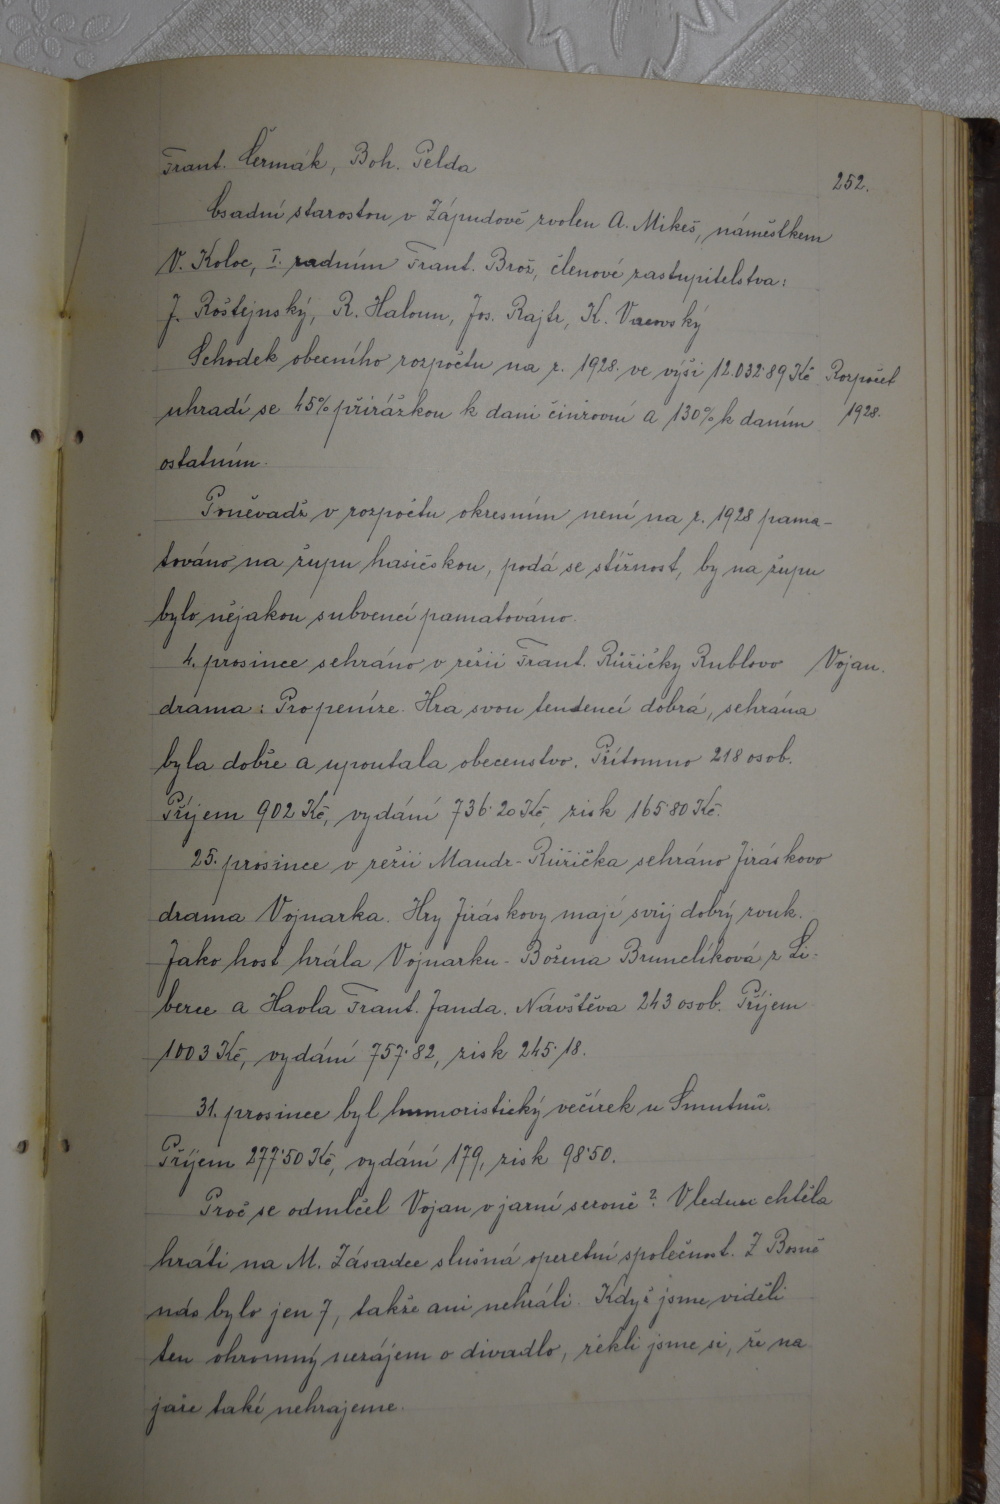 Frant. Čermák, Boh. Pelda
252.
Osadní starostou v Zápudově zvolen A. Mikeš, náměstkem
V. Koloc, I. radním Frant. Brož, členové zastupitelstva:
J. Roštejnský, R. Haloun, Jos. Rajtr, K. Vacovský
Schodek obecního rozpočtu na r. 1928. ve výši 12.032·89 Kč Rozpočet
uhradí se 45% přirážkou k dani činžovní a 130% k daním 1928.
ostatním.
Poněvadž v rozpočtu okresním není na r. 1928 pama-
továno na župu hasičskou, podá se stížnost, by na župu
bylo nějakou subvencí pamatováno.
4. prosince sehráno v režii Frant. Růžičky Rublovo Vojan.
drama: Pro peníze. Hra svou tendencí dobrá, sehrána
byla dobře a upoutala obecenstvo. Přítomno 218 osob.
Příjem 902 Kč, vydání 736·20 Kč, zisk 165·80 Kč.
25. prosince v režii Maudr-Růžička sehráno Jiráskovo
drama Vojnarka. Hry Jiráskovy mají svůj dobrý zvuk.
Jako host hrála Vojnarku - Božena Brunclíková z Li-
berce a Havla Frant. Janda. Návštěva 243 osob. Příjem
1003 Kč, vydání 757·82, zisk 245·18.
31. prosince byl humoristický večírek u Smutnů.
Příjem 277·50 Kč, vydání 179, zisk 98·50.
Proč se odmlčel Vojan v jarní sezoně? V lednu chtěla
hráti na M. Zásadce slušná operetní společnost. Z Bosně
nás bylo jen 7, takže ani nehráli. Když jsme viděli
ten ohromný nezájem o divadlo, řekli jsme si, že na
jaře také nehrajeme.